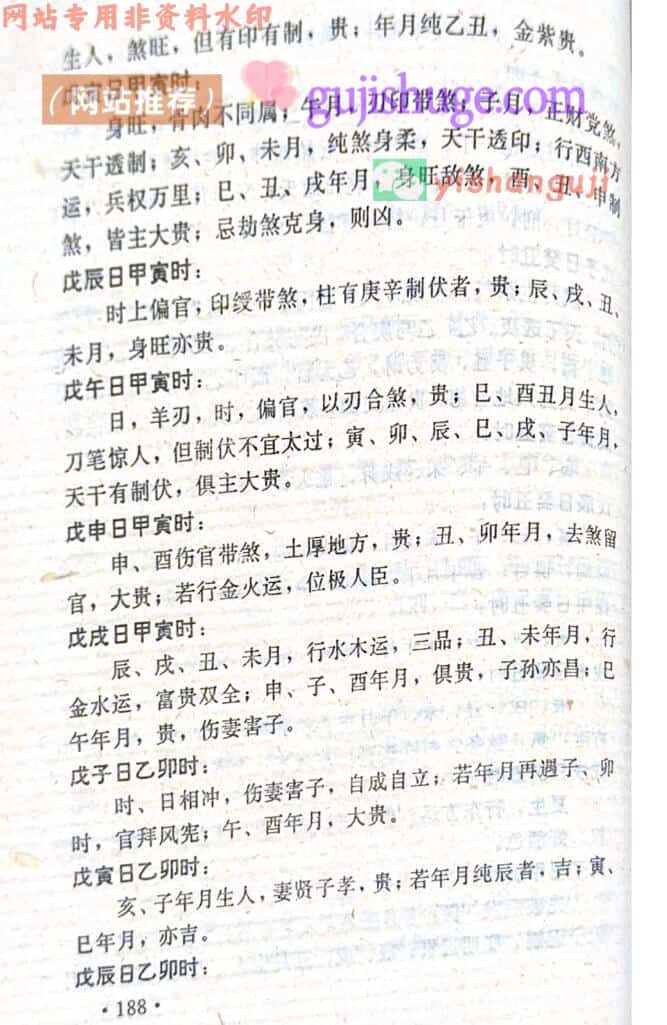 网站专用非资料水印
生人，煞旺，但有印有制，贵；年月纯乙丑，金紫贵。
日甲寅时：
（网站推荐）
gujishuge.com
身旺，骨肉不同属；午月，刃印带煞；子月，正财党煞，
天干透制；亥、卯、未月，纯煞身柔，天干透印；行西南方
yishanguji
运，兵权万里；巳、丑、戌年月，身旺敌煞；酉、丑、申制
煞，皆主大贵；忌劫煞克身，则凶。
戊辰日甲寅时：
时上偏官，印绶带煞，柱有庚辛制伏者，贵；辰、戌、丑、
未月，身旺亦贵。
戊午日甲寅时：
日，羊刃，时，偏官，以刃合煞，贵；巳、酉丑月生人，
刀笔惊人，但制伏不宜太过；寅、卯、辰、巳、戌、子年月，
天干有制伏，俱主大贵。
戊申日甲寅时：
申、酉伤官带煞，土厚地方，贵；丑、卯年月，去煞留
官，大贵；若行金火运，位极人臣。
戊戌日甲寅时：
辰、戌、丑、未月，行水木运，三品；丑、未年月，行
金水运，富贵双全；申、子、酉年月，俱贵，子孙亦昌；巳
午年月，贵，伤妻害子。
戊子日乙卯时：
时、日相冲，伤妻害子，自成自立；若年月再遇子、卯
时，官拜风宪；午、酉年月，大贵。
戊寅日乙卯时：
亥、子年月生人，妻贤子孝，贵；若年月纯辰者，吉；寅、
巳年月，亦吉。
戊辰日乙卯时：
·188·